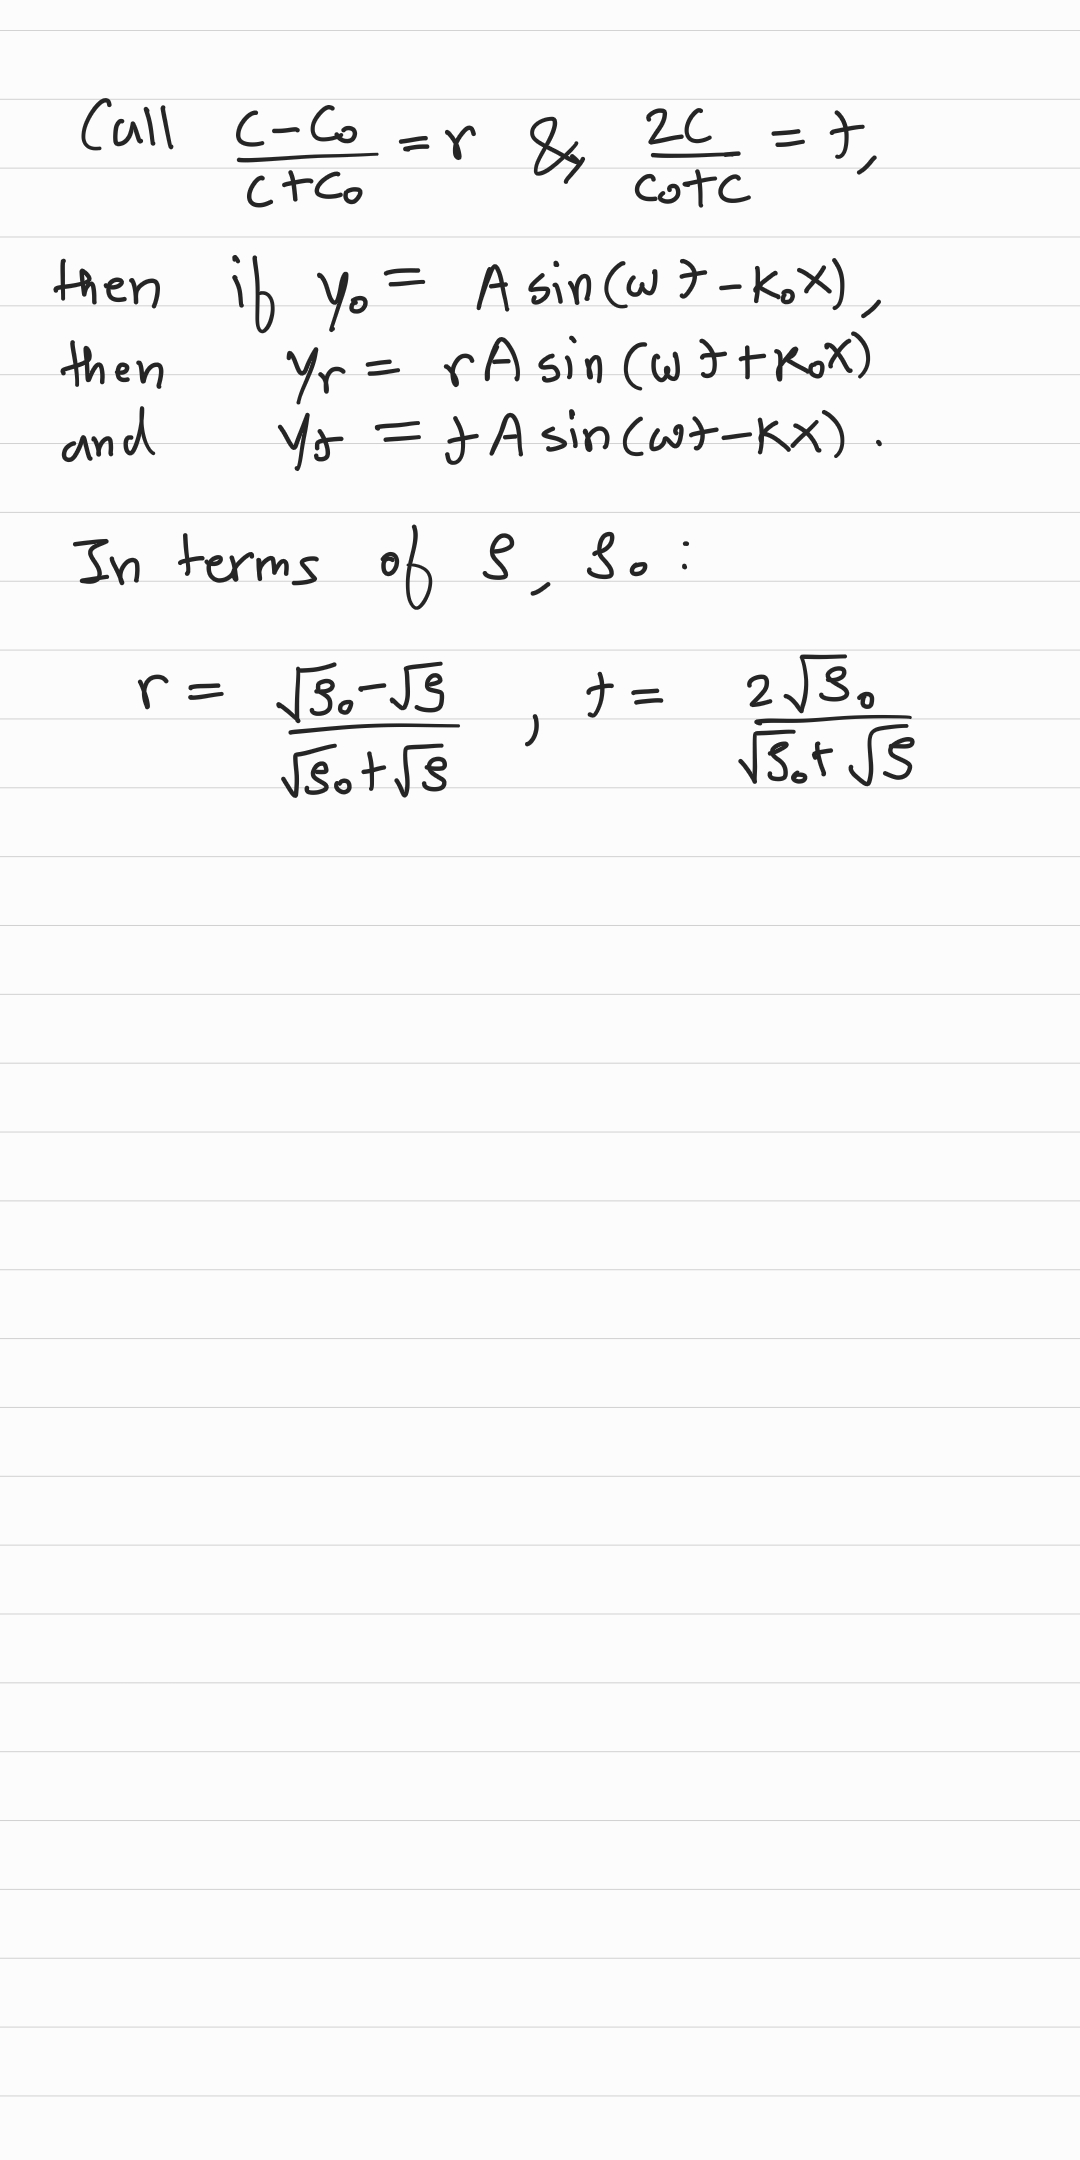 Call (c-c₀)/(c+c₀) = r & 2c/(c₀+c) = t,
then if y₀ = A sin(ωt-k₀x),
then yᵣ = rA sin(ωt+k₀x)
and yₜ = tA sin(ωt-kx).
In terms of ρ, ρ₀:
r = (√ρ₀-√ρ)/(√ρ₀+√ρ), t = 2√ρ₀/(√ρ₀+√ρ)